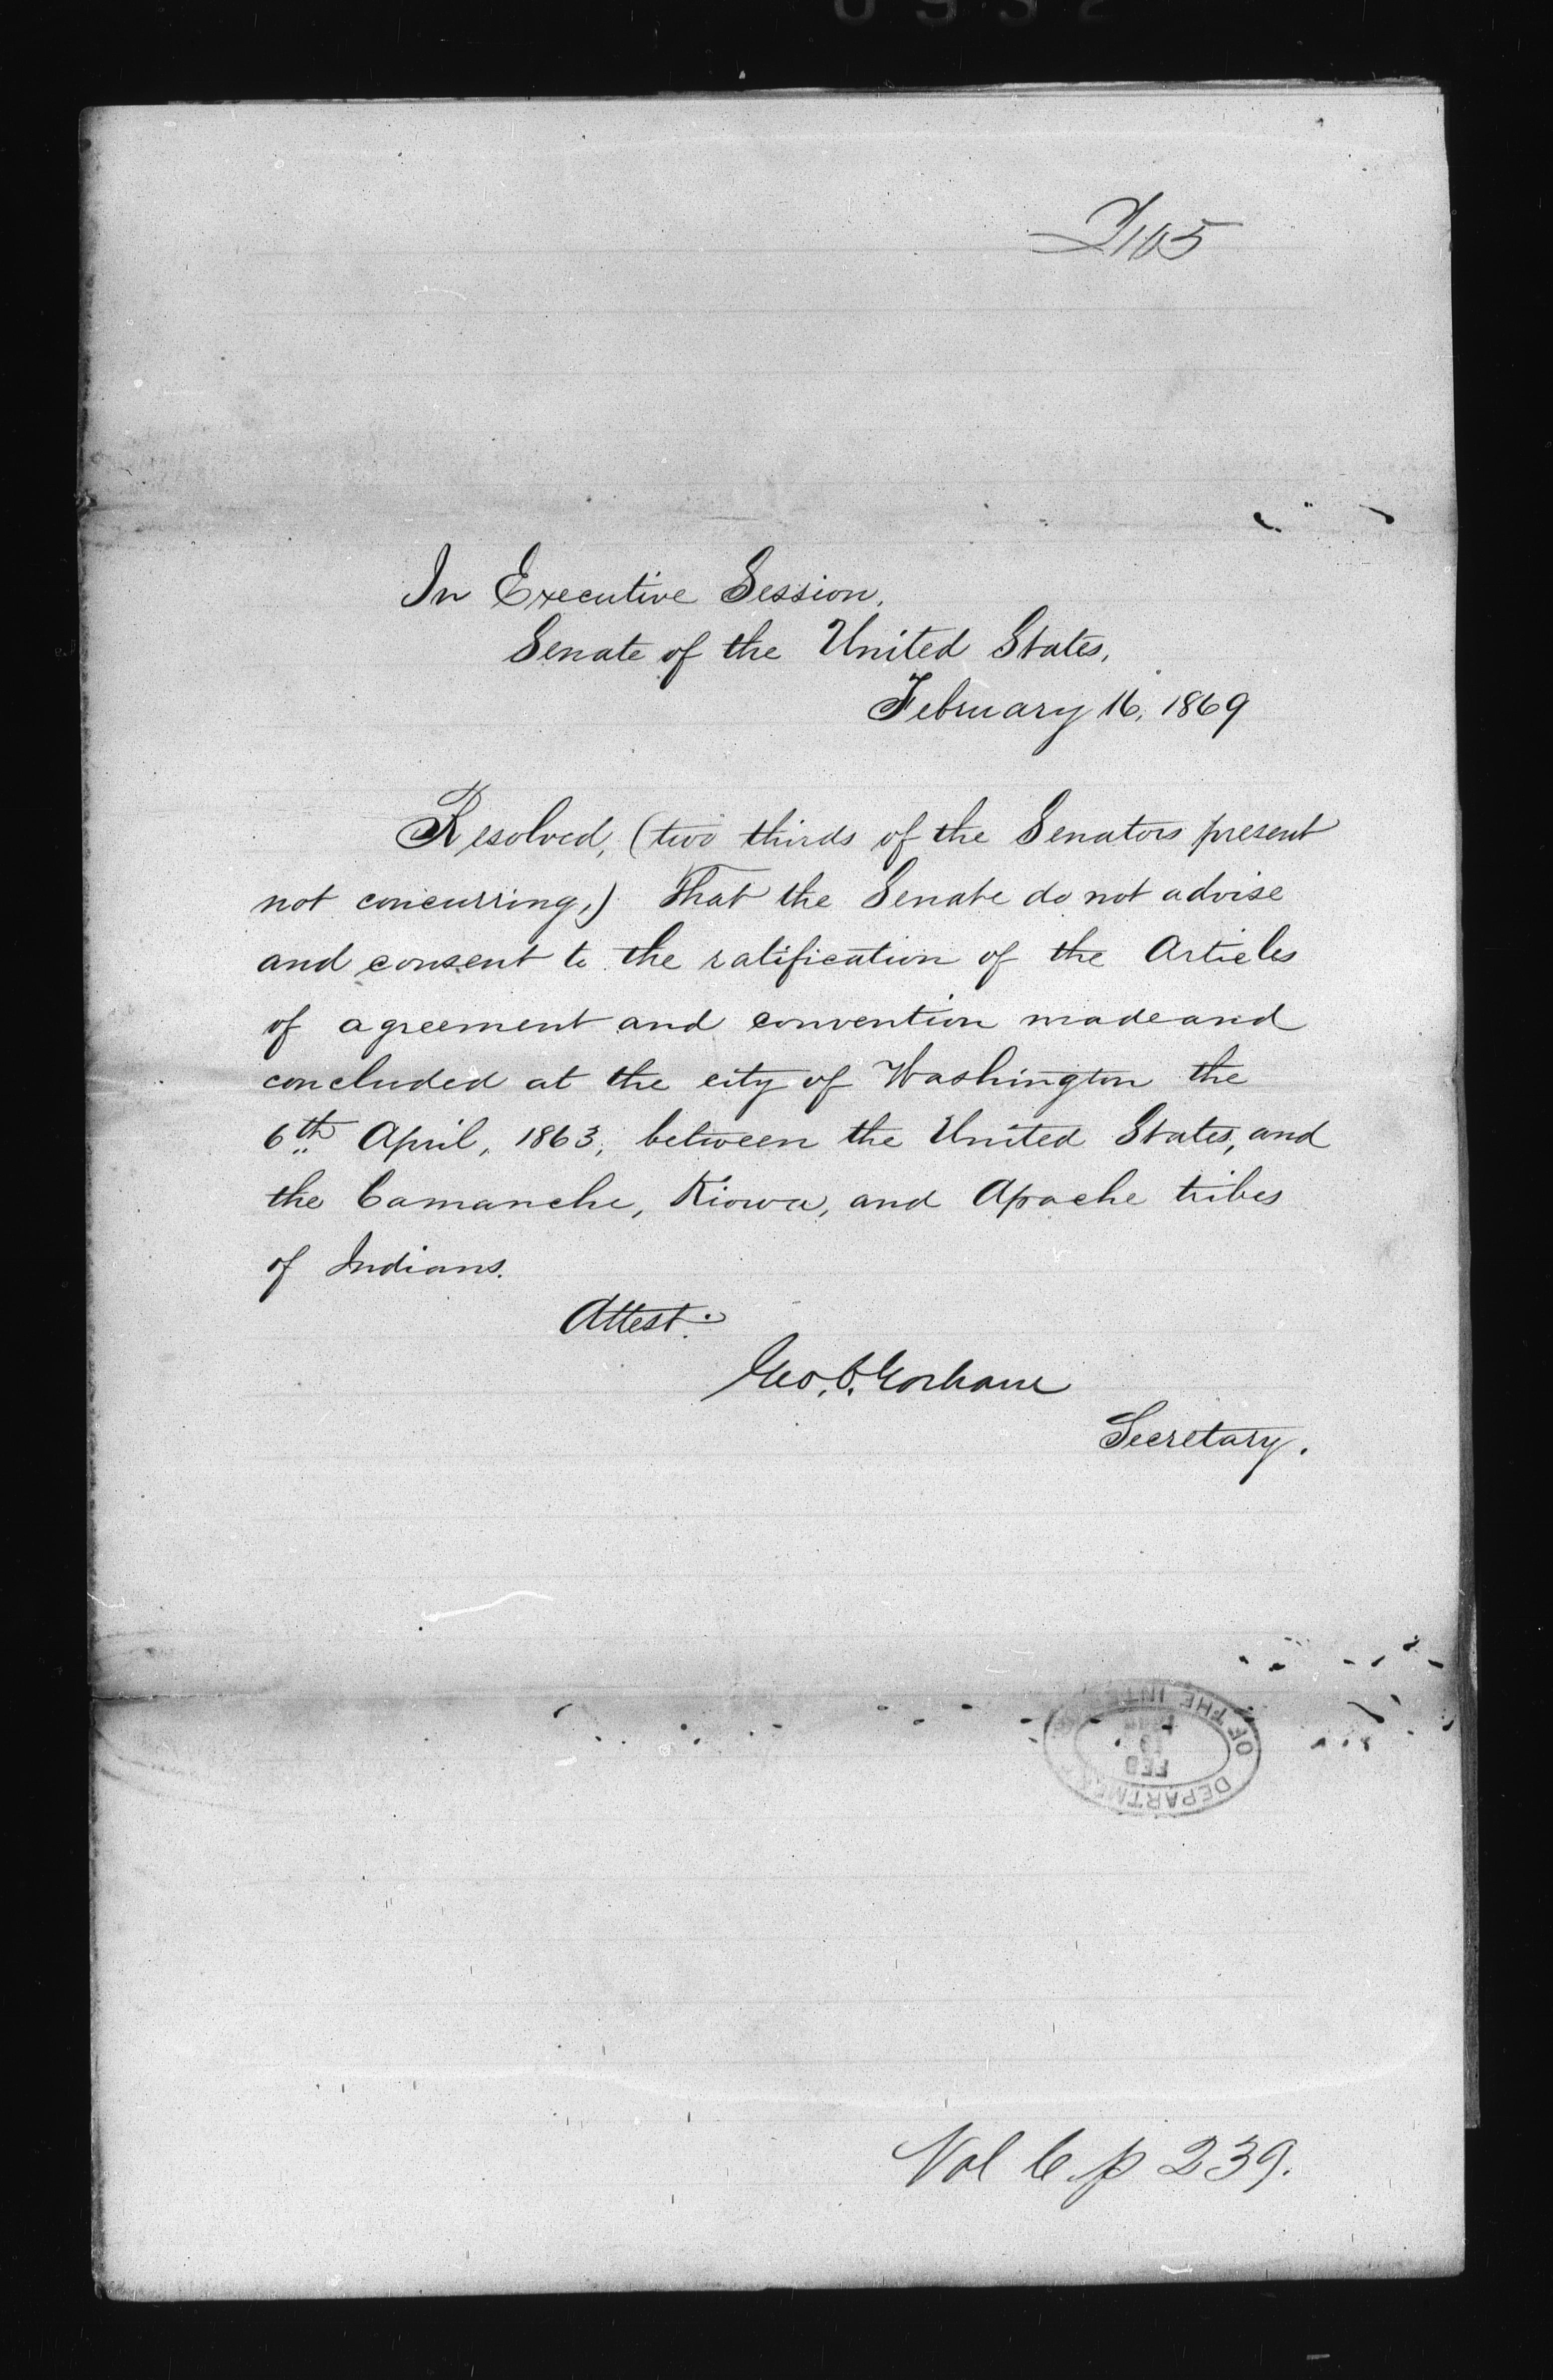 I 105
In Executive Session,
Senate of the United States,
February 16, 1869
Resolved, (two thirds of the Senators present
not concurring,) That the Senate do not advise
and consent to the ratification of the Articles
of agreement and convention made and
concluded at the city of Washington the
6th April, 1863, between the United States, and
the Camanche, Kiowa, and Apache tribes
of Indians.
Attest:
Geo. C. Gorham
Secretary.
DEPARTMENT OF THE INT
FEB
19
Vol 6 p 239.